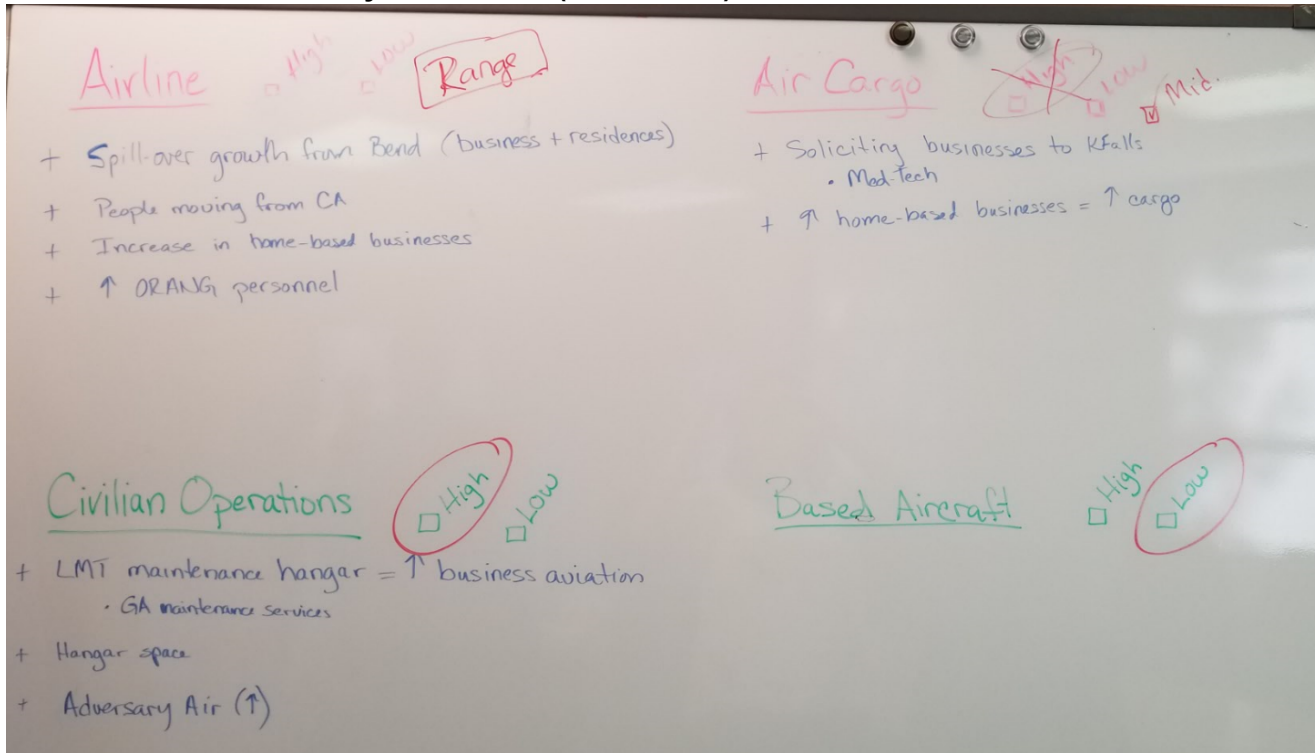 Airline □ High □ Low Range
+ Spill-over growth from Bend (business + residences)
+ People moving from CA
+ Increase in home-based businesses
+ ↑ ORANG personnel
Air Cargo □ High □ Low ☑ Mid.
+ Soliciting businesses to KFalls
• Med-Tech
+ ↑ home-based businesses = ↑ cargo
Civilian Operations □ High □ Low
+ LMT maintenance hangar = ↑ business aviation
• GA maintenance services
+ Hangar space
+ Adversary Air (↑)
Based Aircraft □ High □ Low